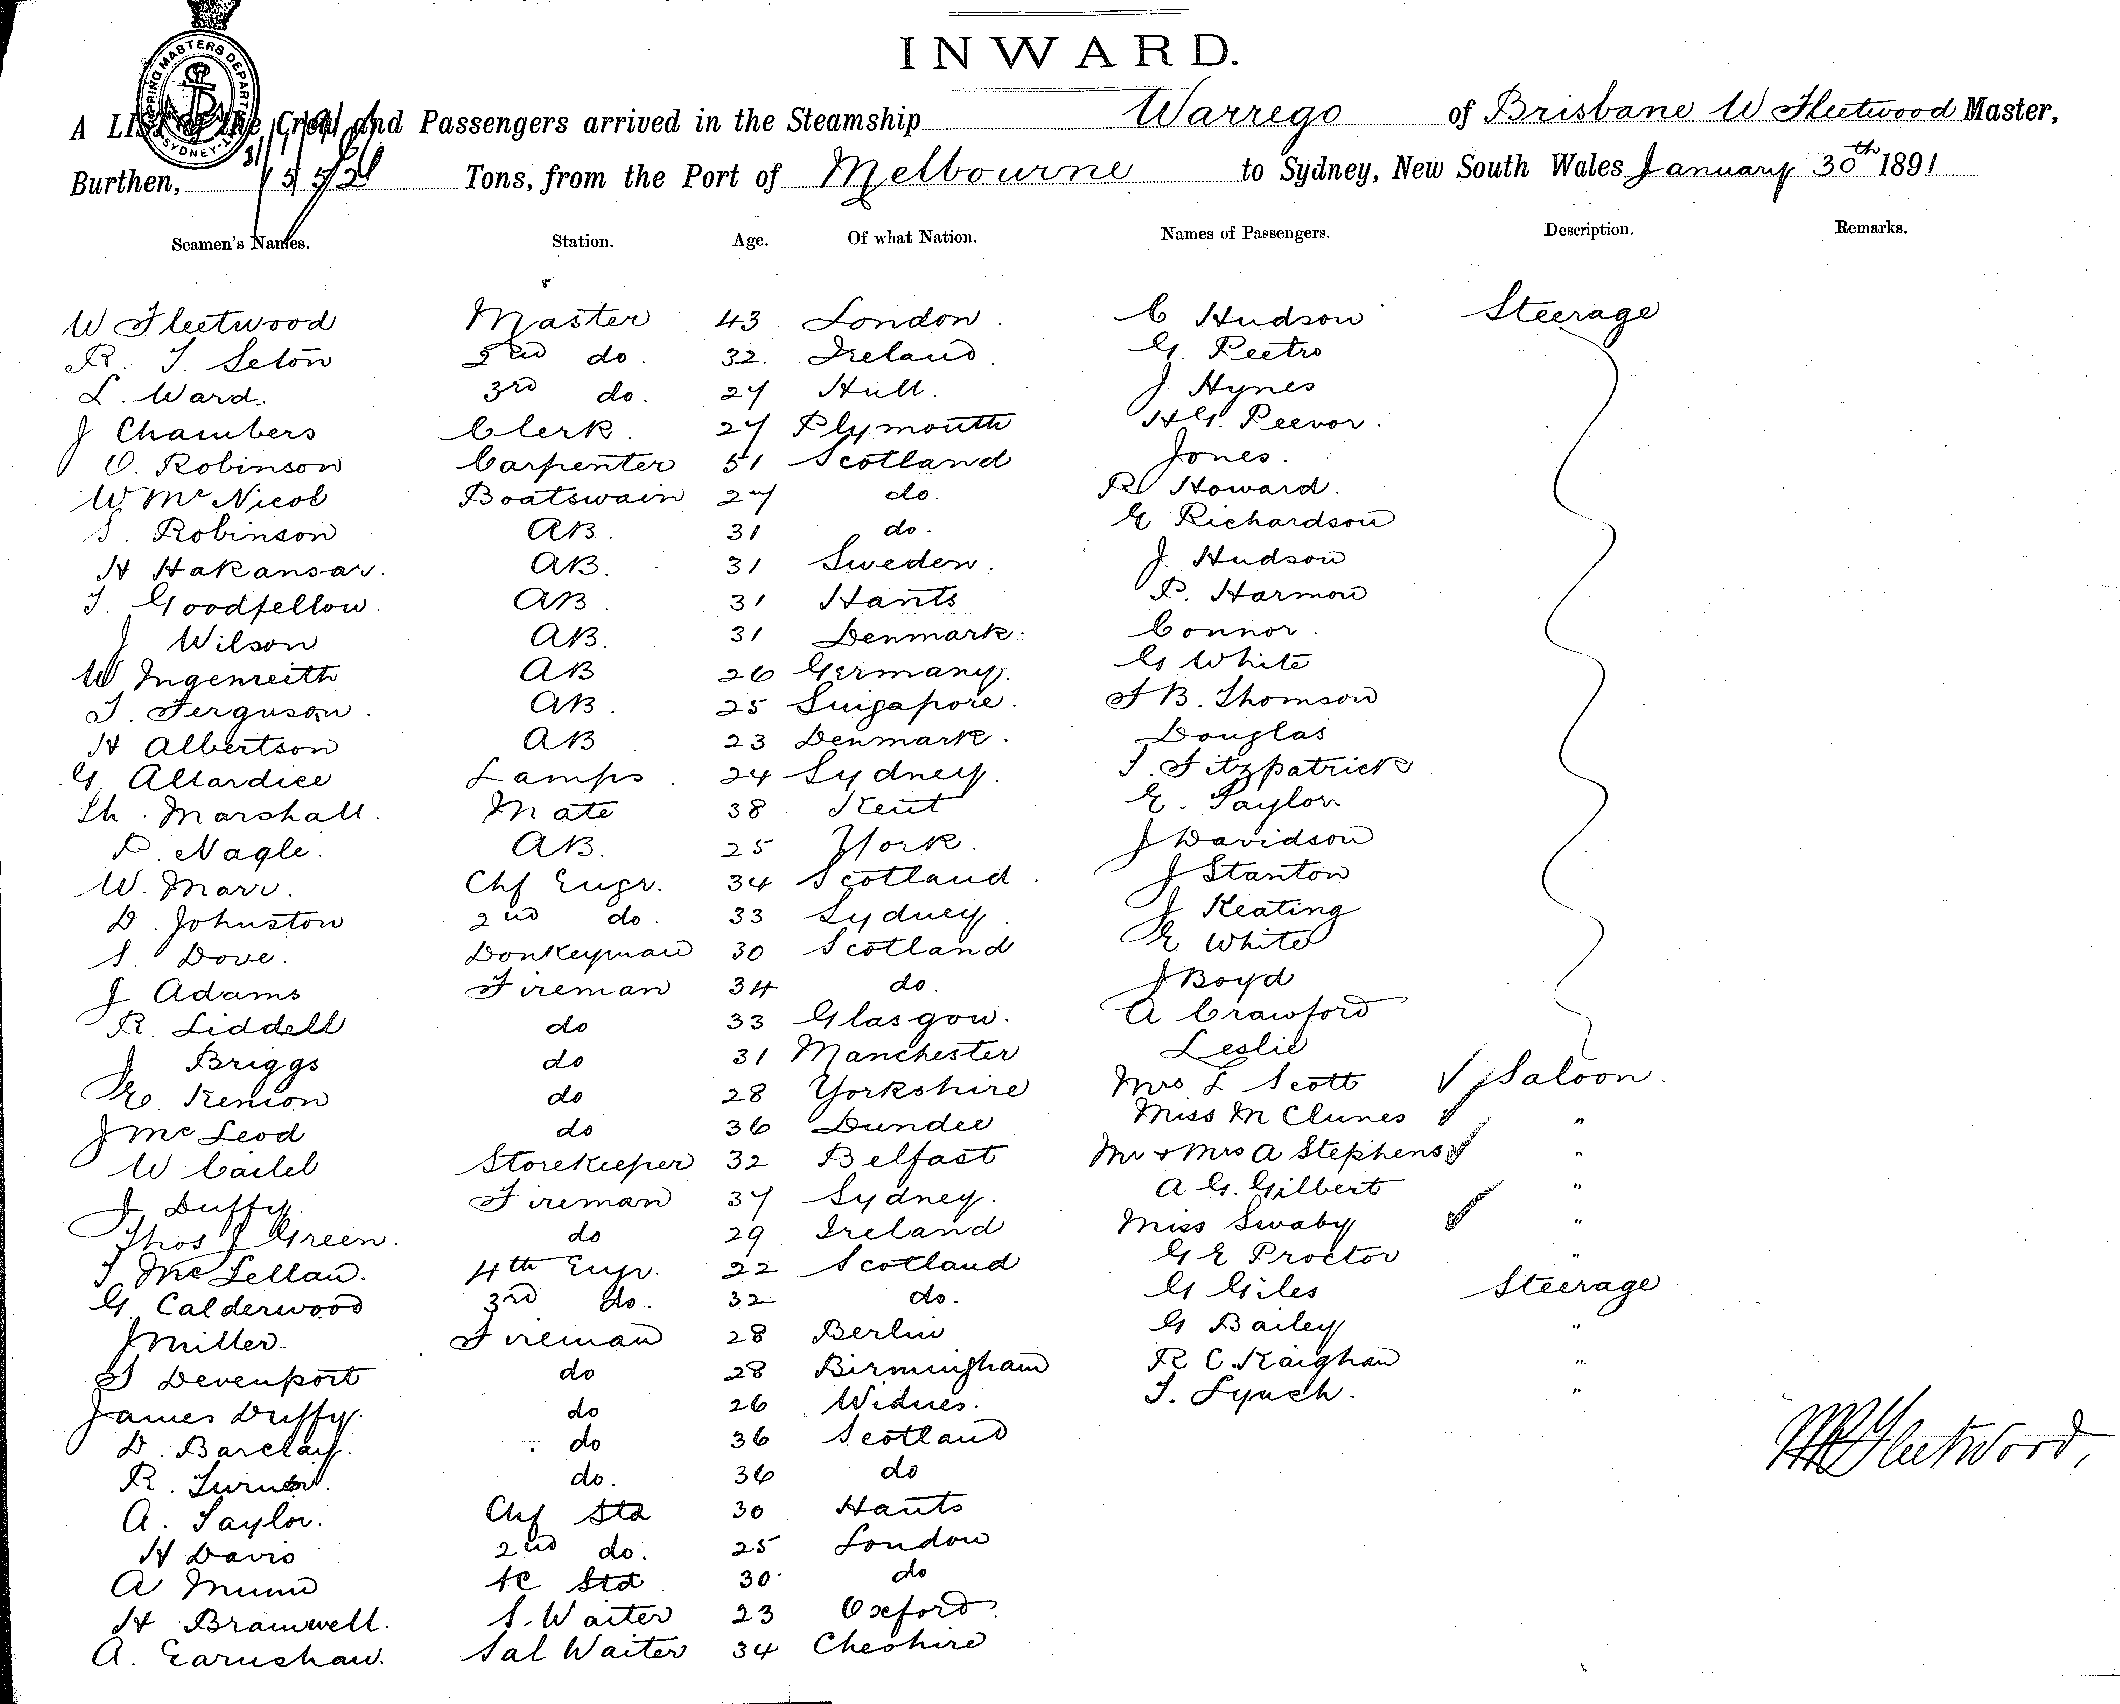 INWARD.
A List of the Crew and Passengers arrived in the Steamship Warrego of Brisbane W Fleetwood Master,
Burthen, Tons, from the Port of Melbourne to Sydney, New South Wales January 30th 1891
Seamen's Names. Station. Age. Of what Nation. Names of Passengers. Description. Remarks.
W Fleetwood Master 43 London. C Hudson Steerage
R. T. Seton 2nd do. 32. Ireland. G. Peetro
L. Ward. 3rd do. 27 Hull. J. Hynes
J Chambers Clerk. 27 Plymouth H G. Peevor.
O. Robinson Carpenter 51 Scotland Jones.
W. McNicol Boatswain 27 do. R Howard.
S. Robinson AB. 31 do. E Richardson
H Hakansar. AB. 31 Sweden. J. Hudson
T. Goodfellow. AB. 31 Hants P. Harmon
J Wilson AB. 31 Denmark. Connor.
W Ingenreith AB 26 Germany. G White
T. Ferguson. AB. 25 Singapore. F B. Thomson
H Albertson AB 23 Denmark. Douglas
G. Allardice Lamps. 24 Sydney. T. Fitzpatrick
Th. Marshall. Mate 38 Kent E. Taylor
P. Nagle. AB. 25 York. J Davidson
W. Marr. Chf Engr. 34 Scotland. J Stanton
D. Johnston 2nd do. 33 Sydney J Keating
S. Dove. Donkeyman 30 Scotland E White
J Adams Fireman 34 do. J Boyd
R. Liddell do 33 Glasgow. A Crawford
J Briggs do 31 Manchester Leslie
E. Kenion do 28 Yorkshire Mrs L Scott Saloon.
J McLeod do 36 Dundee Miss M Clunes "
W Storekeeper 32 Belfast Mr & Mrs A Stephens "
J. Duffy Fireman 37 Sydney. A G. Gilbert "
Thos J Green. do 29 Ireland Miss Swaby "
T McLellan. 4th Engr. 22 Scotland G E Proctor "
G. Calderwood 3rd do. 32 do. G Giles Steerage
J Miller Fireman 28 Berlin G Bailey "
S Devenport do 28 Birmingham R C. Kaighan "
James Duffy. do 26 Widnes. T. Lynch. "
D. Barclay. do 36 Scotland
R. Turner. do. 36 do
W Fleetwood,
A. Taylor. Chf Std 30 Hants
H Davis 2nd do. 25 London
A Munn Std 30 do
H Bramwell. S. Waiter 23 Oxford.
A. Earnshaw. Sal Waiter 34 Cheshire